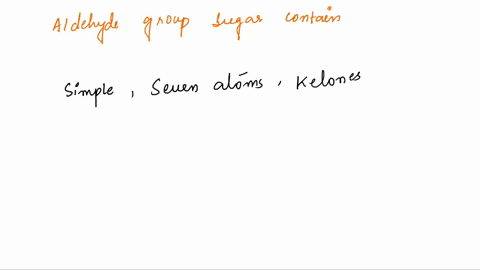 Aldehyde group sugar contain
Simple, Seven atoms, Kelones